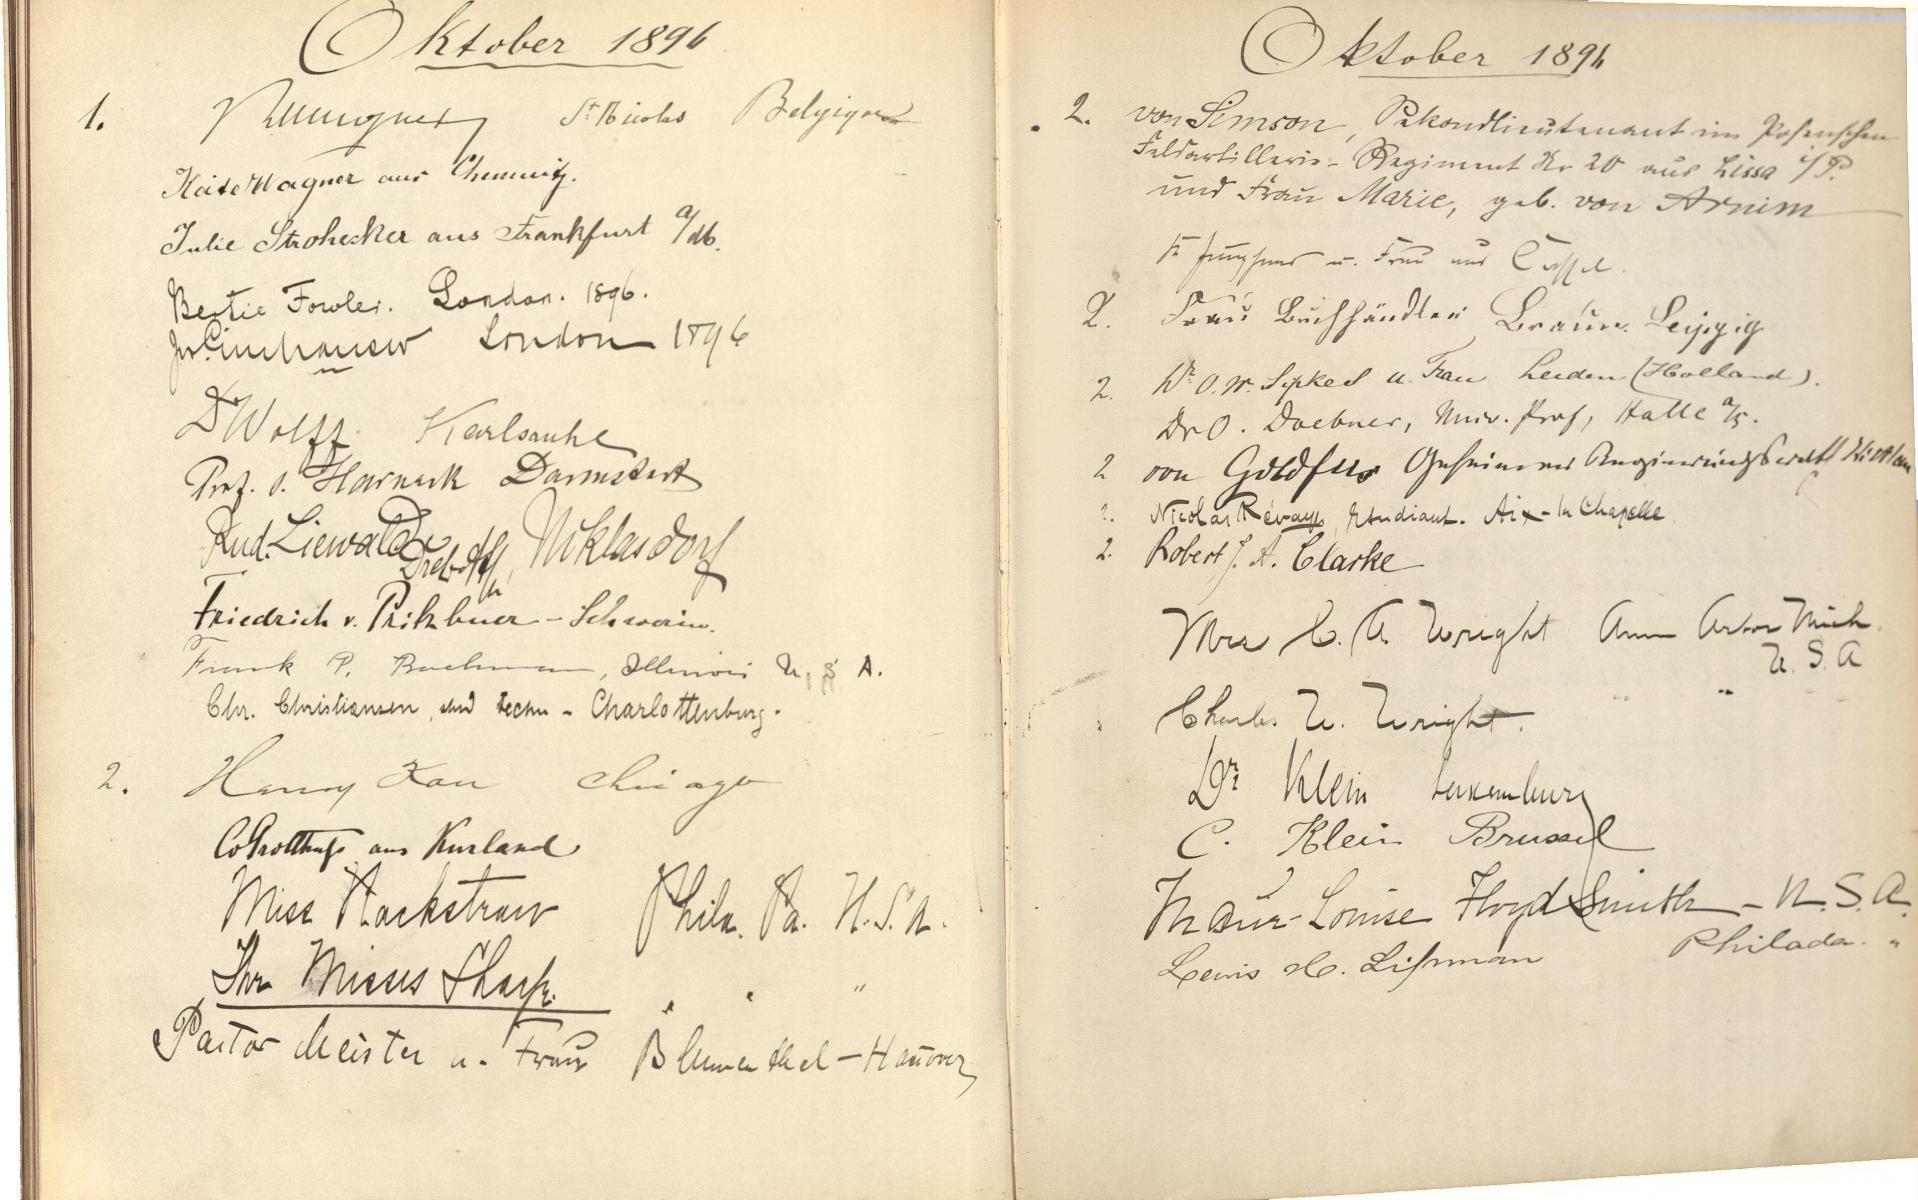 Oktober 1896
1. St Nicolas Belgique
Käte Wagner aus Chemnitz.
Julie Strohecker aus Frankfurt a/M.
Bertie Fowler. London. 1896.
London 1896
Dr Wolff Karlsruhe
Prof. O. Harneck Darmstadt
Rud. Liewald Niklasdorf
Friedrich v. Prihbuer - Schwerin.
Frank P. Bachman, Illinois U. S. A.
Chr. Christiansen, stud techn - Charlottenburg.
2. Henry Kau Chicago
aus Kurland
Miss Rackstraw Phila. Pa. U. S. A.
The Misses Sharp. " " "
Pastor Meister u. Frau Blumenthal - Hanover
Oktober 1896
2. von Simson, Sekondlieutenant im Posenschen
Feldartillerie-Regiment Nr 20 aus Lissa i/P.
und Frau Marie, geb. von Arnim
u. Frau aus Cassel.
2. Frau Buchhändler Braun. Leipzig
2. Dr. O. W. Sipkes u. Frau Leiden (Holland).
Dr O. Doebner, Univ. Prof, Halle a/S.
2 von Goldfus Geheimer Regierungsrath
2. Nicolas Révay, Etudiant. Aix-la Chapelle
2. Robert J. A. Clarke
Mrs C. A. Wright Ann Arbor Mich.
U. S. A
Charles W. Wright. " "
Dr. Klein Luxemburg
C. Klein Brussel
Louise Floyd Smith - U. S. A.
Lewis H. Lipman Philada. "